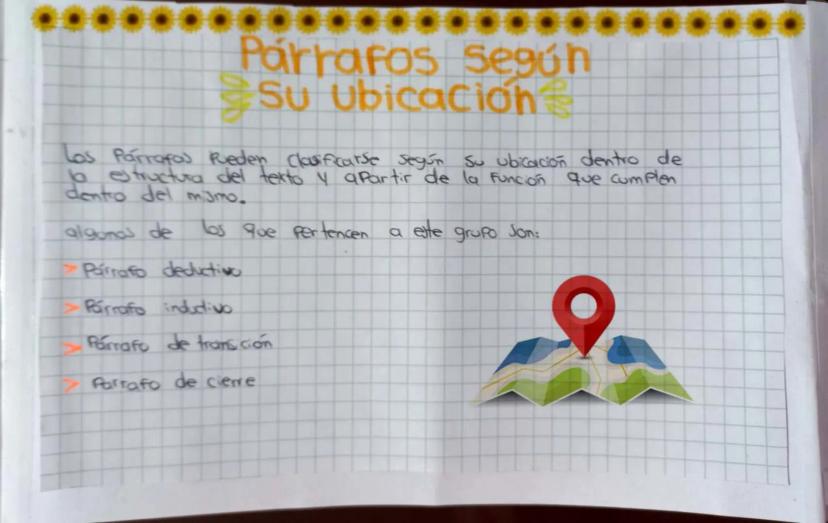 Párrafos según
su ubicación
Los Párrafos Pueden clasificarse según su ubicación dentro de
la estructura del texto y apartir de la Función que cumplen
dentro del mismo.
algunos de los que pertencen a este grupo son:
> Párrafo deductivo
> Párrafo inductivo
> Párrafo de transición
> Parrafo de cierre